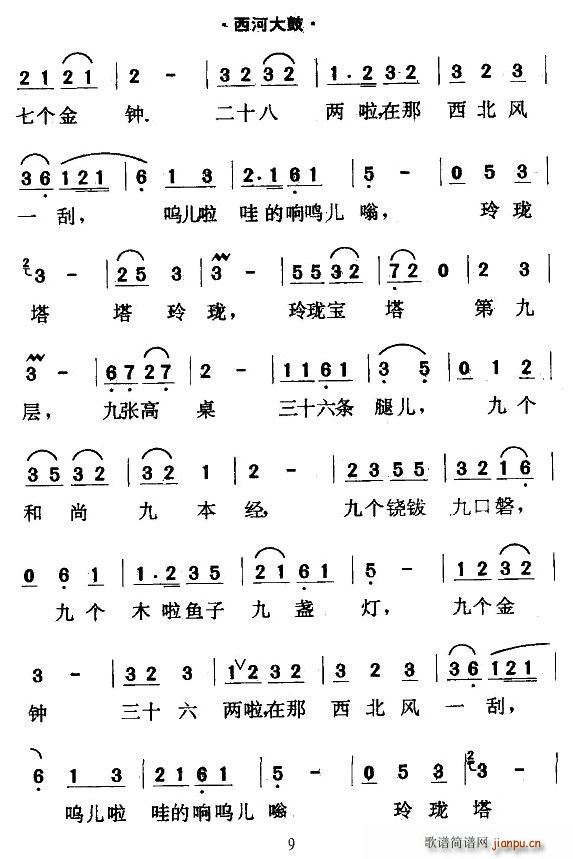 ·西河大鼓·
2 1 2 1 | 2 - | 3 2 3 2 | 1·2 3 2 | 3 2 3
七个金 钟. 二十八 两啦,在那 西北风
3 6 1 2 1 | 6 1 3 | 2·1 6 1 | 5 - | 0 5 3
一刮, 呜儿啦 哇的响鸣儿 嗡, 玲珑
2 3 - | 2 5 3 | 3 - | 5 5 3 2 | 7 2 0 | 2 3
塔 塔玲 珑, 玲珑宝 塔 第九
3 - | 6 7 2 7 | 2 - | 1 1 6 1 | 3 5 | 0 1 2
层, 九张高 桌 三十六条 腿儿, 九个
3 5 3 2 | 3 2 1 | 2 - | 2 3 5 5 | 3 2 1 6
和尚 九本 经, 九个铙钹 九口磬,
0 6 1 | 1·2 3 5 | 2 1 6 1 | 5 - | 1 2 3 2
九个 木啦鱼子 九盏 灯, 九个金
3 - | 3 2 3 | 1 2 3 2 | 3 2 3 | 3 6 1 2 1
钟 三十六 两啦,在那 西北风 一刮,
6 1 3 | 2 1 6 1 | 5 - | 0 5 3 | 2 3 -
呜儿啦 哇的响呜儿 嗡 玲珑 塔
9
歌谱简谱网 jianpu.cn